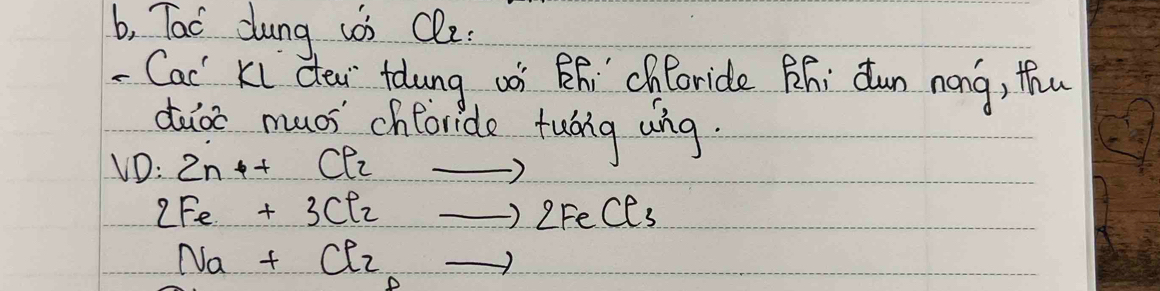 b, Tác dụng với Cl₂:
- Các KL đều tdụng với khí chloride khi đun nóng, thu
được muối chloride tương ứng.
VD: Zn + Cl₂ ⟶
2Fe + 3Cl₂ ⟶ 2FeCl₃
Na + Cl₂ ⟶